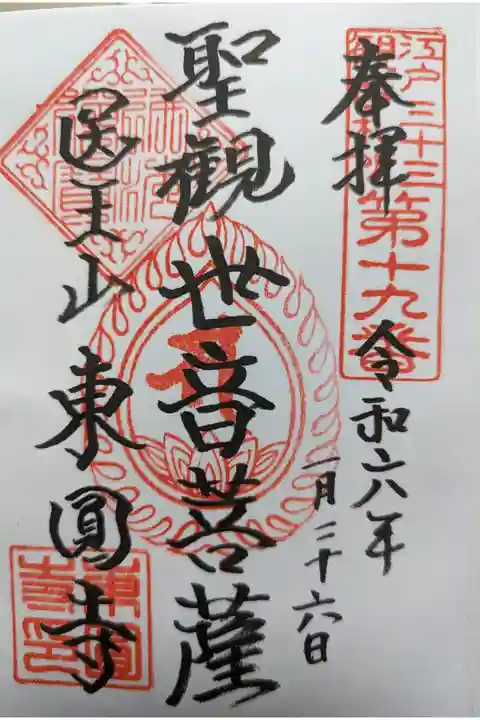 江戸三十三
第十九番
奉拝
令和六年
一月二十六日
聖観世音菩薩
医王山 東圓寺
佛法僧寶
東圓寺印